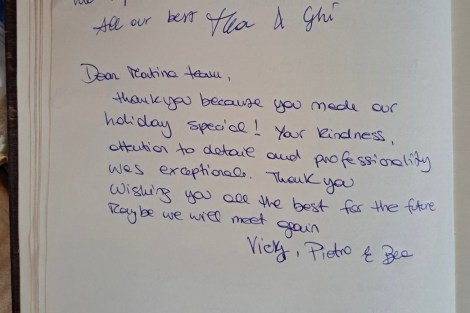 All our best Thea & Ghi
Dear team,
thank you because you made our
holiday special! Your kindness,
attention to detail and professionality
was exceptional. Thank you
Wishing you all the best for the future
Maybe we will meet again
Vicky, Pietro & Bea